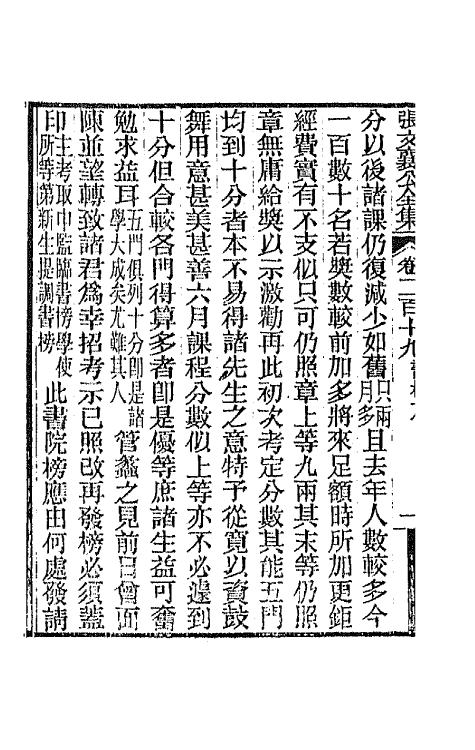 張文襄公全集 卷二百十九 書札六 一
分以後諸課仍復減少如舊只兩月多且去年人數較多今
一百數十名若奬數較前加多將來足額時所加更鉅
經費實有不支似只可仍照章上等九兩其末等仍照
章無庸給奬以示激勸再此初次考定分數其能五門
均到十分者本不易得諸先生之意特予從寬以資鼓
舞用意甚美甚善六月課程分數似上等亦不必遽到
十分但合較各門得算多者卽是優等庶諸生益可奮
勉求益耳五門俱列十分卽是諸學大成矣尤難其人管蠡之見前日曾面
陳並望轉致諸君爲幸招考示已照改再發榜必須蓋
印主考取中監臨書榜學使所等第新生提調書榜此書院榜應由何處發請